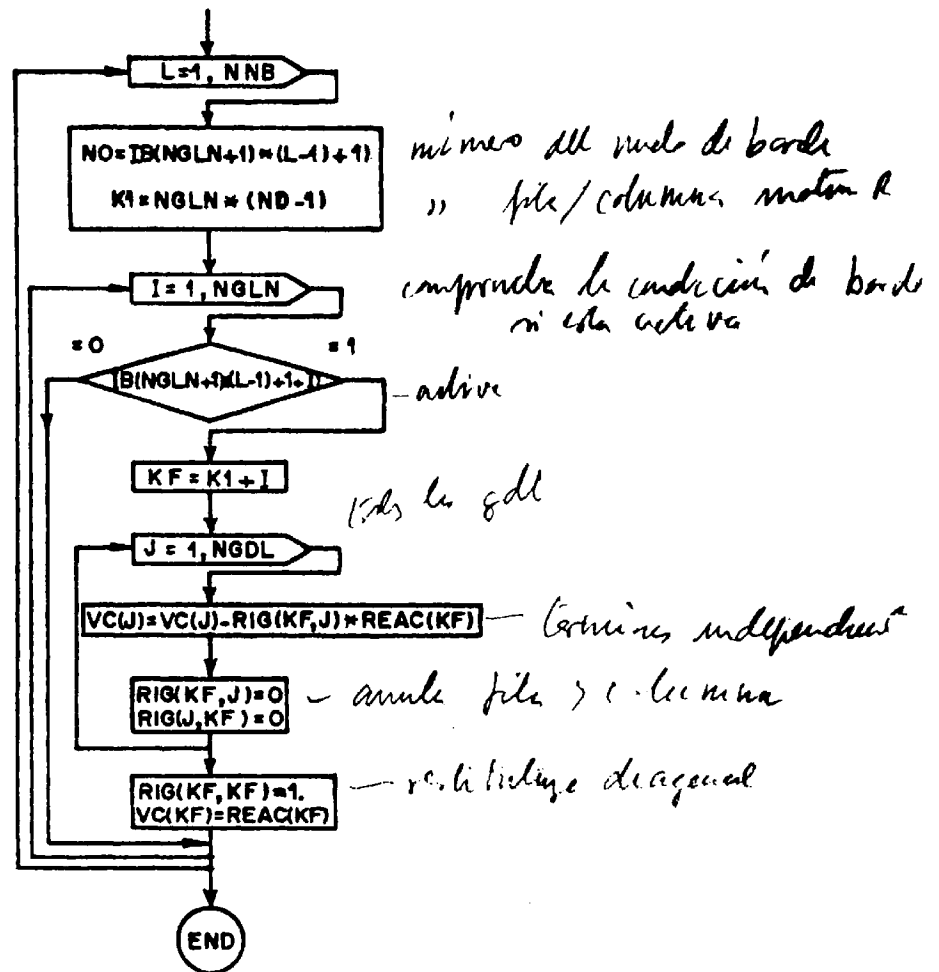 L=1, NNB
NO=IB(NGLN+1)*(L-1)+1)
K1=NGLN*(NO-1)
número del nudo de borde
" fila/columna matriz R
I=1, NGLN
comprueba la condición de borde
si esta activa
=0
=1
IB(NGLN+1)*(L-1)+1+I)
- active
KF=K1+I
todos los gdl
J=1, NGDL
VC(J)=VC(J)-RIG(KF,J)*REAC(KF)
- términos independient
RIG(KF,J)=0
RIG(J,KF)=0
- anula fila y columna
RIG(KF,KF)=1.
VC(KF)=REAC(KF)
- restituye diagonal
END